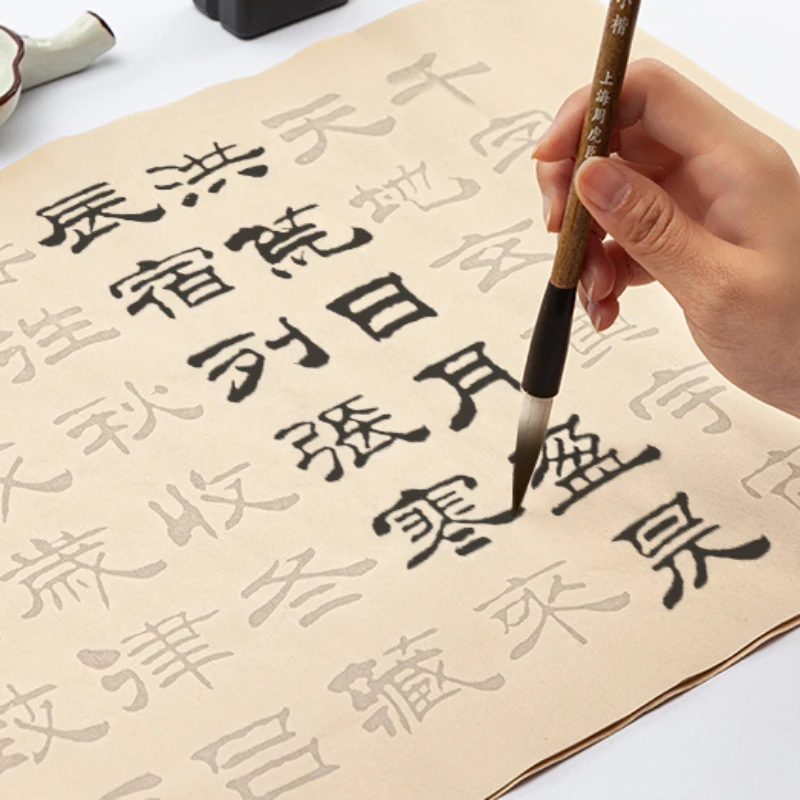 千字
天地玄黃宇宙
洪荒日月盈昃
辰宿列張寒來
往秋收冬藏
歲律呂
致
小楷 上海周虎臣